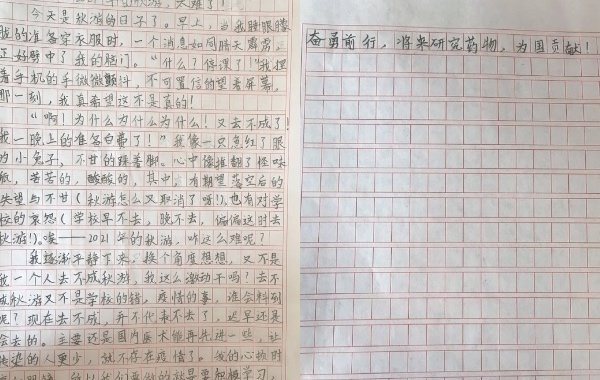 今天是秋游的日子了。早上,当我睡眼朦
的准备穿衣服时,一个消息如同晴天霹雳,
正好劈中了我的脑门。“什么?停课了!”我握
着手机的手微微颤抖,不可置信的望着屏幕,
那一刻,我真希望这不是真的!
“啊!为什么为什么为什么!又去不成了!
我一晚上的准备白费了!”我像一只急红了眼
的小兔子,不甘的跺着脚。心中像推翻了怪味
瓶,苦苦的,酸酸的,其中,有期望落空后的
失望与不甘(秋游怎么又取消了呀!)也有对学
校的哀怨(学校早不去,晚不去,偏偏这时去
秋游!)。唉——2021年的秋游,咋这么难呢?
我逐渐平静了下来,换个角度想想,又不是
我一个人去不成秋游,我这么激动干吗?去不
成秋游又不是学校的错,疫情的事,谁会料到
呢?现在去不成,并不代表不去了,迟早还是
会去的。主要还是国内医术能再先进一些,让
染的人更少,就不存在疫情了。我的心顿时
奋勇前行,将来研究药物,为国贡献!